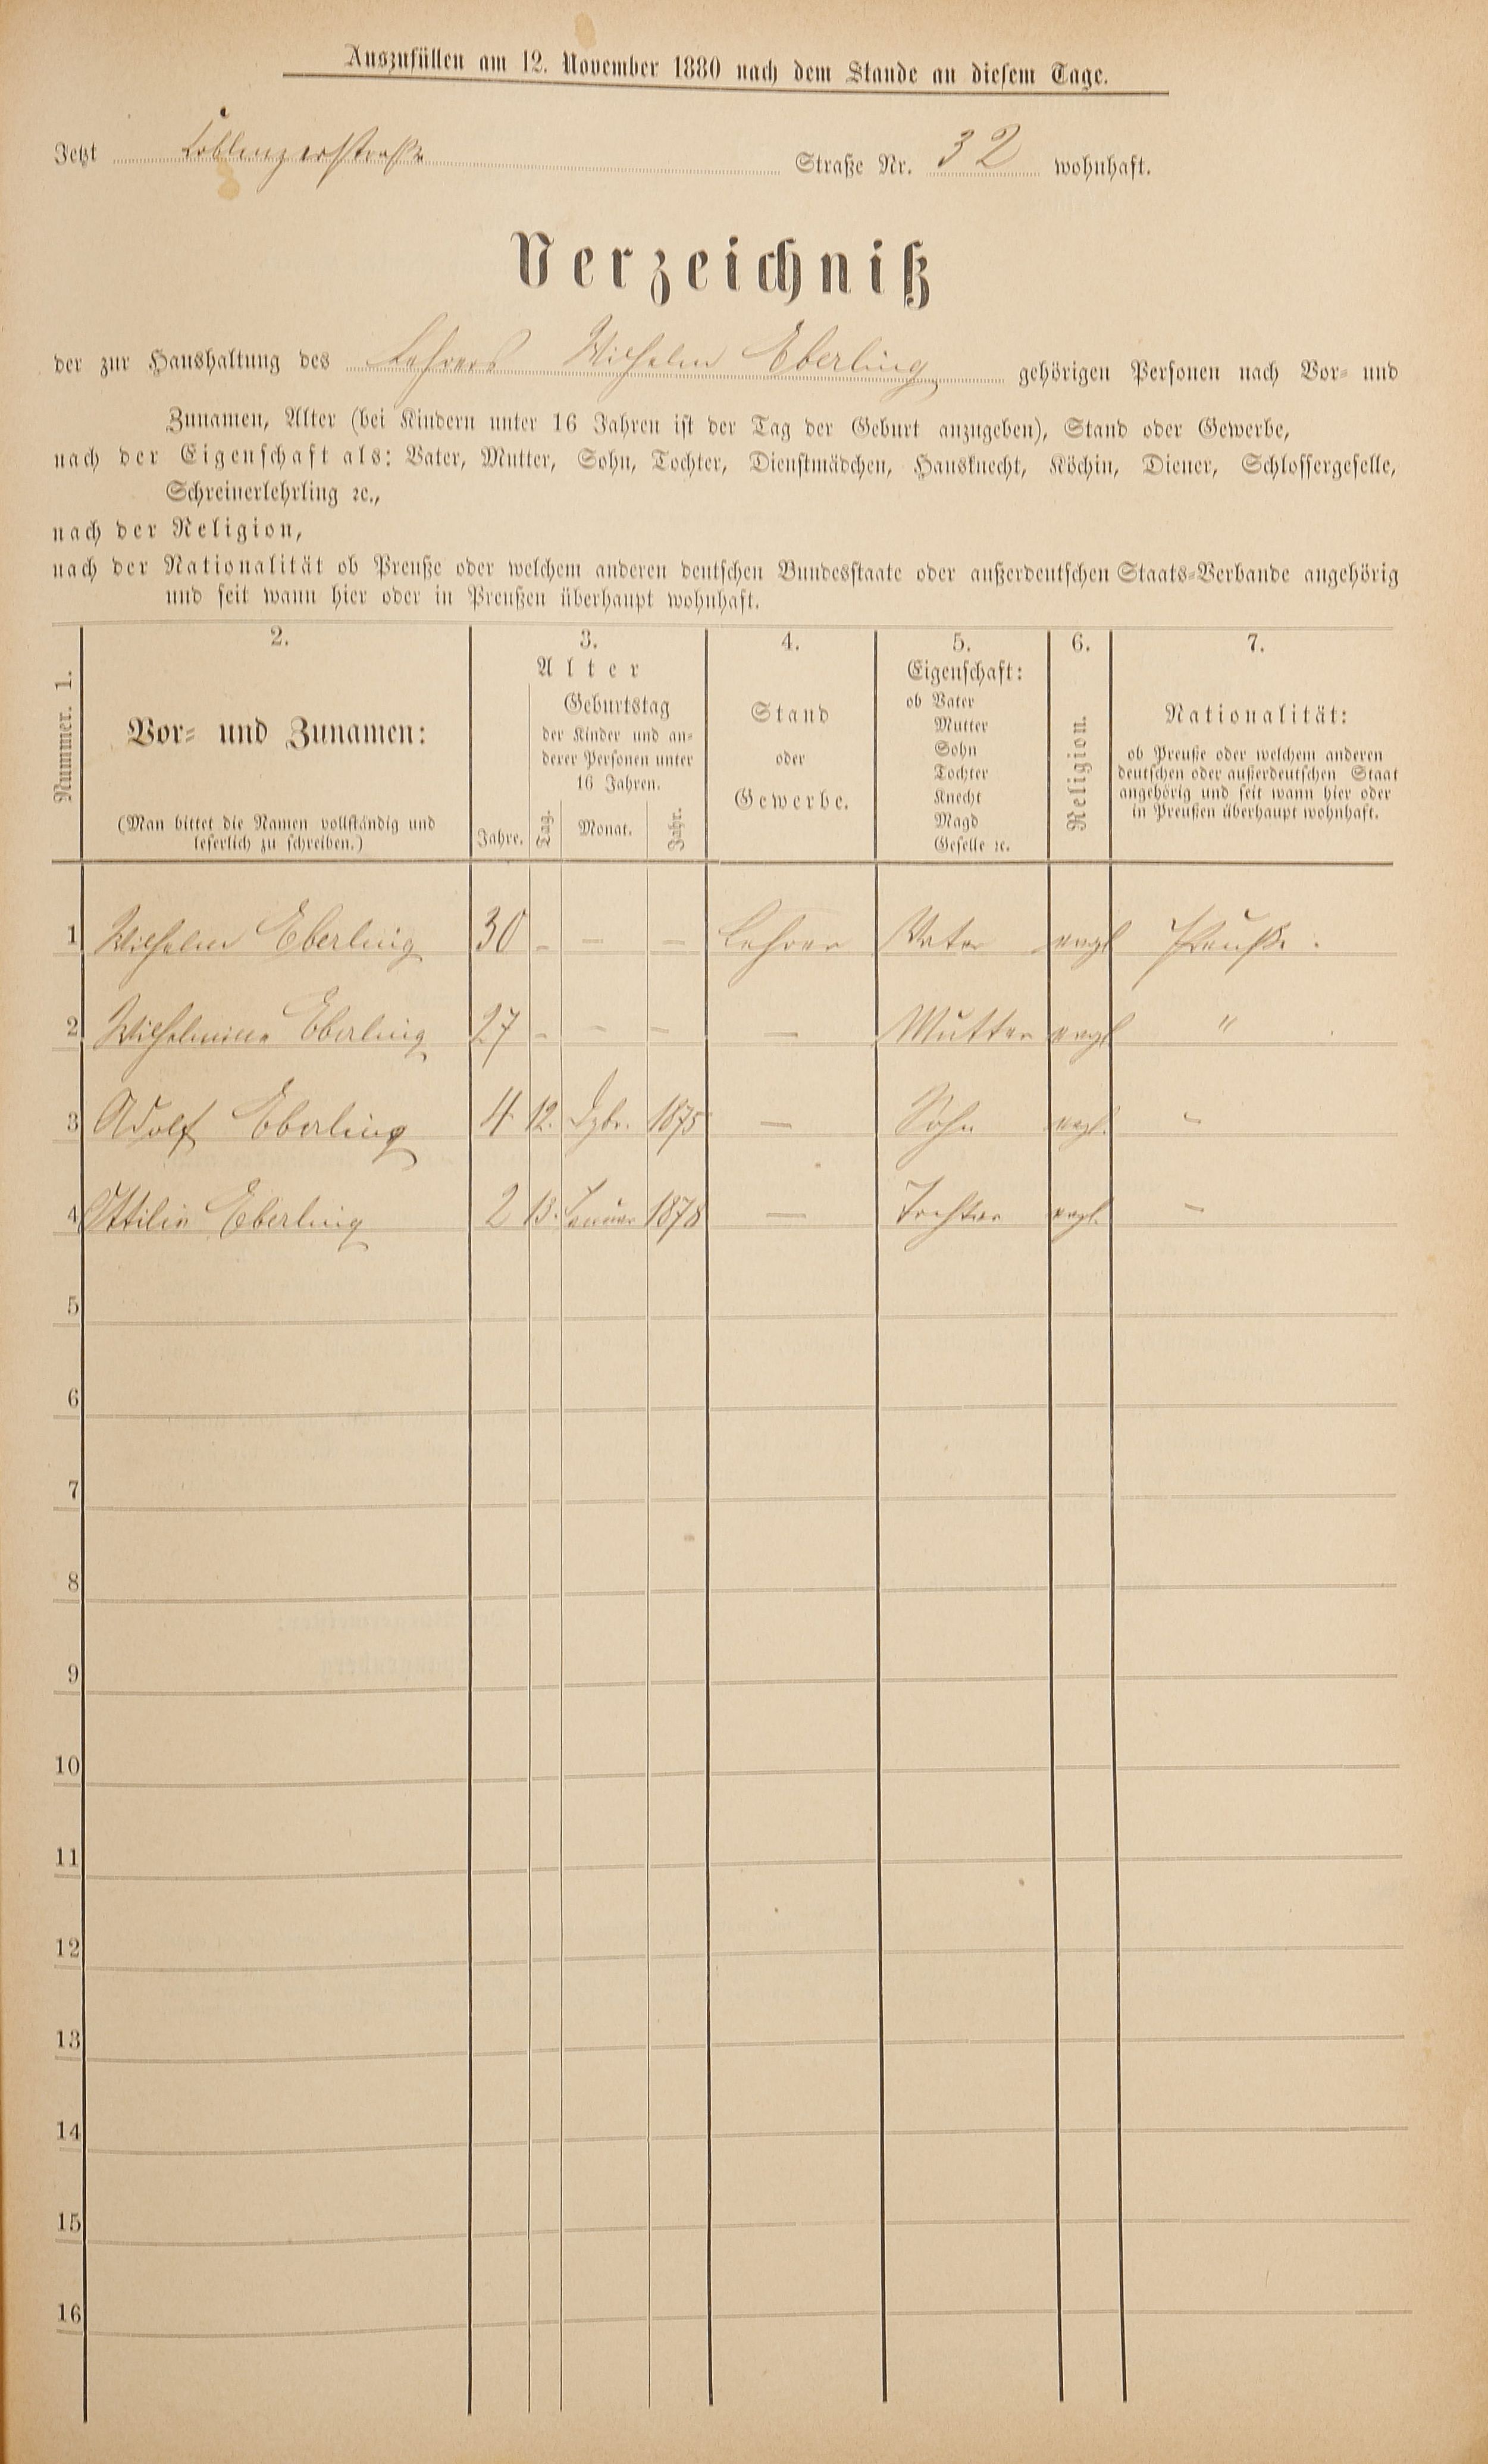 Auszufüllen am 12. November 1880 nach dem Stande an diesem Tage.
Jetzt Coblenzerstraße Straße Nr. 32 wohnhaft.
Verzeichniß
der zur Haushaltung des Lehrers Wilhelm Eberling gehörigen Personen nach Vor- und
Zunamen, Alter (bei Kindern unter 16 Jahren ist der Tag der Geburt anzugeben), Stand oder Gewerbe,
nach der Eigenschaft als: Vater, Mutter, Sohn, Tochter, Dienstmädchen, Hausknecht, Köchin, Diener, Schlossergeselle,
Schreinerlehrling ꝛc.,
nach der Religion,
nach der Nationalität ob Preuße oder welchem anderen deutschen Bundesstaate oder außerdeutschen Staats-Verbande angehörig
und seit wann hier oder in Preußen überhaupt wohnhaft.
Nummer. 1.
2.
Vor- und Zunamen:
(Man bittet die Namen vollständig und
leserlich zu schreiben.)
3.
Alter
Geburtstag
der Kinder und an-
derer Personen unter
16 Jahren.
Jahre. Tag. Monat. Jahr.
4.
Stand
oder
Gewerbe.
5.
Eigenschaft:
ob Vater
Mutter
Sohn
Tochter
Knecht
Magd
Geselle ꝛc.
6.
Religion.
7.
Nationalität:
ob Preuße oder welchem anderen
deutschen oder außerdeutschen Staat
angehörig und seit wann hier oder
in Preußen überhaupt wohnhaft.
1 Wilhelm Eberling 30 – – – Lehrer Vater evgl Preuße.
2 Wilhelmine Eberling 27 – – – – Mutter evgl "
3 Adolf Eberling 4 12. Dzbr. 1875 – Sohn evgl. –
4 Ottilie Eberling 2 13. Januar 1878 – Tochter evgl. –
5
6
7
8
9
10
11
12
13
14
15
16